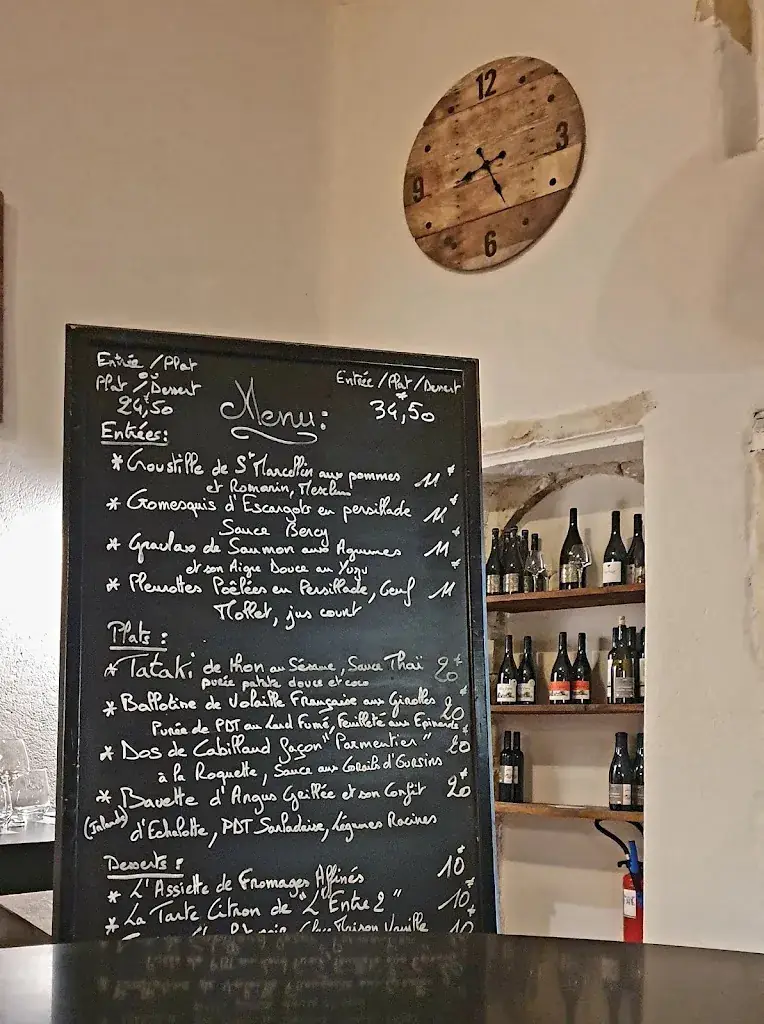 12
3
9
6
Entrée / Plat
ou
Plat / Dessert
24,50
Entrée / Plat / Dessert
34,50
Menu:
Entrées:
* Croustille de St Marcellin aux pommes 11€
et Romarin, Mesclun
* Gomesquis d'Escargots en persillade 11€
Sauce Bercy
* Gravlax de Saumon aux Agrumes 11€
et son Aigre Douce au Yuzu
* Pleurottes Poêlées en Persillade, Oeuf 11
Mollet, jus court
Plats:
* Tataki de thon au Sésame, Sauce Thaï 20€
purée patate douce et coco
* Ballotine de Volaille Française aux Girolles 20
Purée de PDT au Lard Fumé, Feuilleté aux Epinards
* Dos de Cabillaud façon "Parmentier" 20
à la Roquette, Sauce aux Corails d'Oursins
* Bavette d'Angus Grillée et son Confit 20€
(Irlande) d'Echalotte, PDT Sarladaise, Légumes Racines
Desserts:
* L'Assiette de Fromages Affinés 10€
* La Tarte Citron de "L'Entre 2" 10€
Maison Vanille 10€